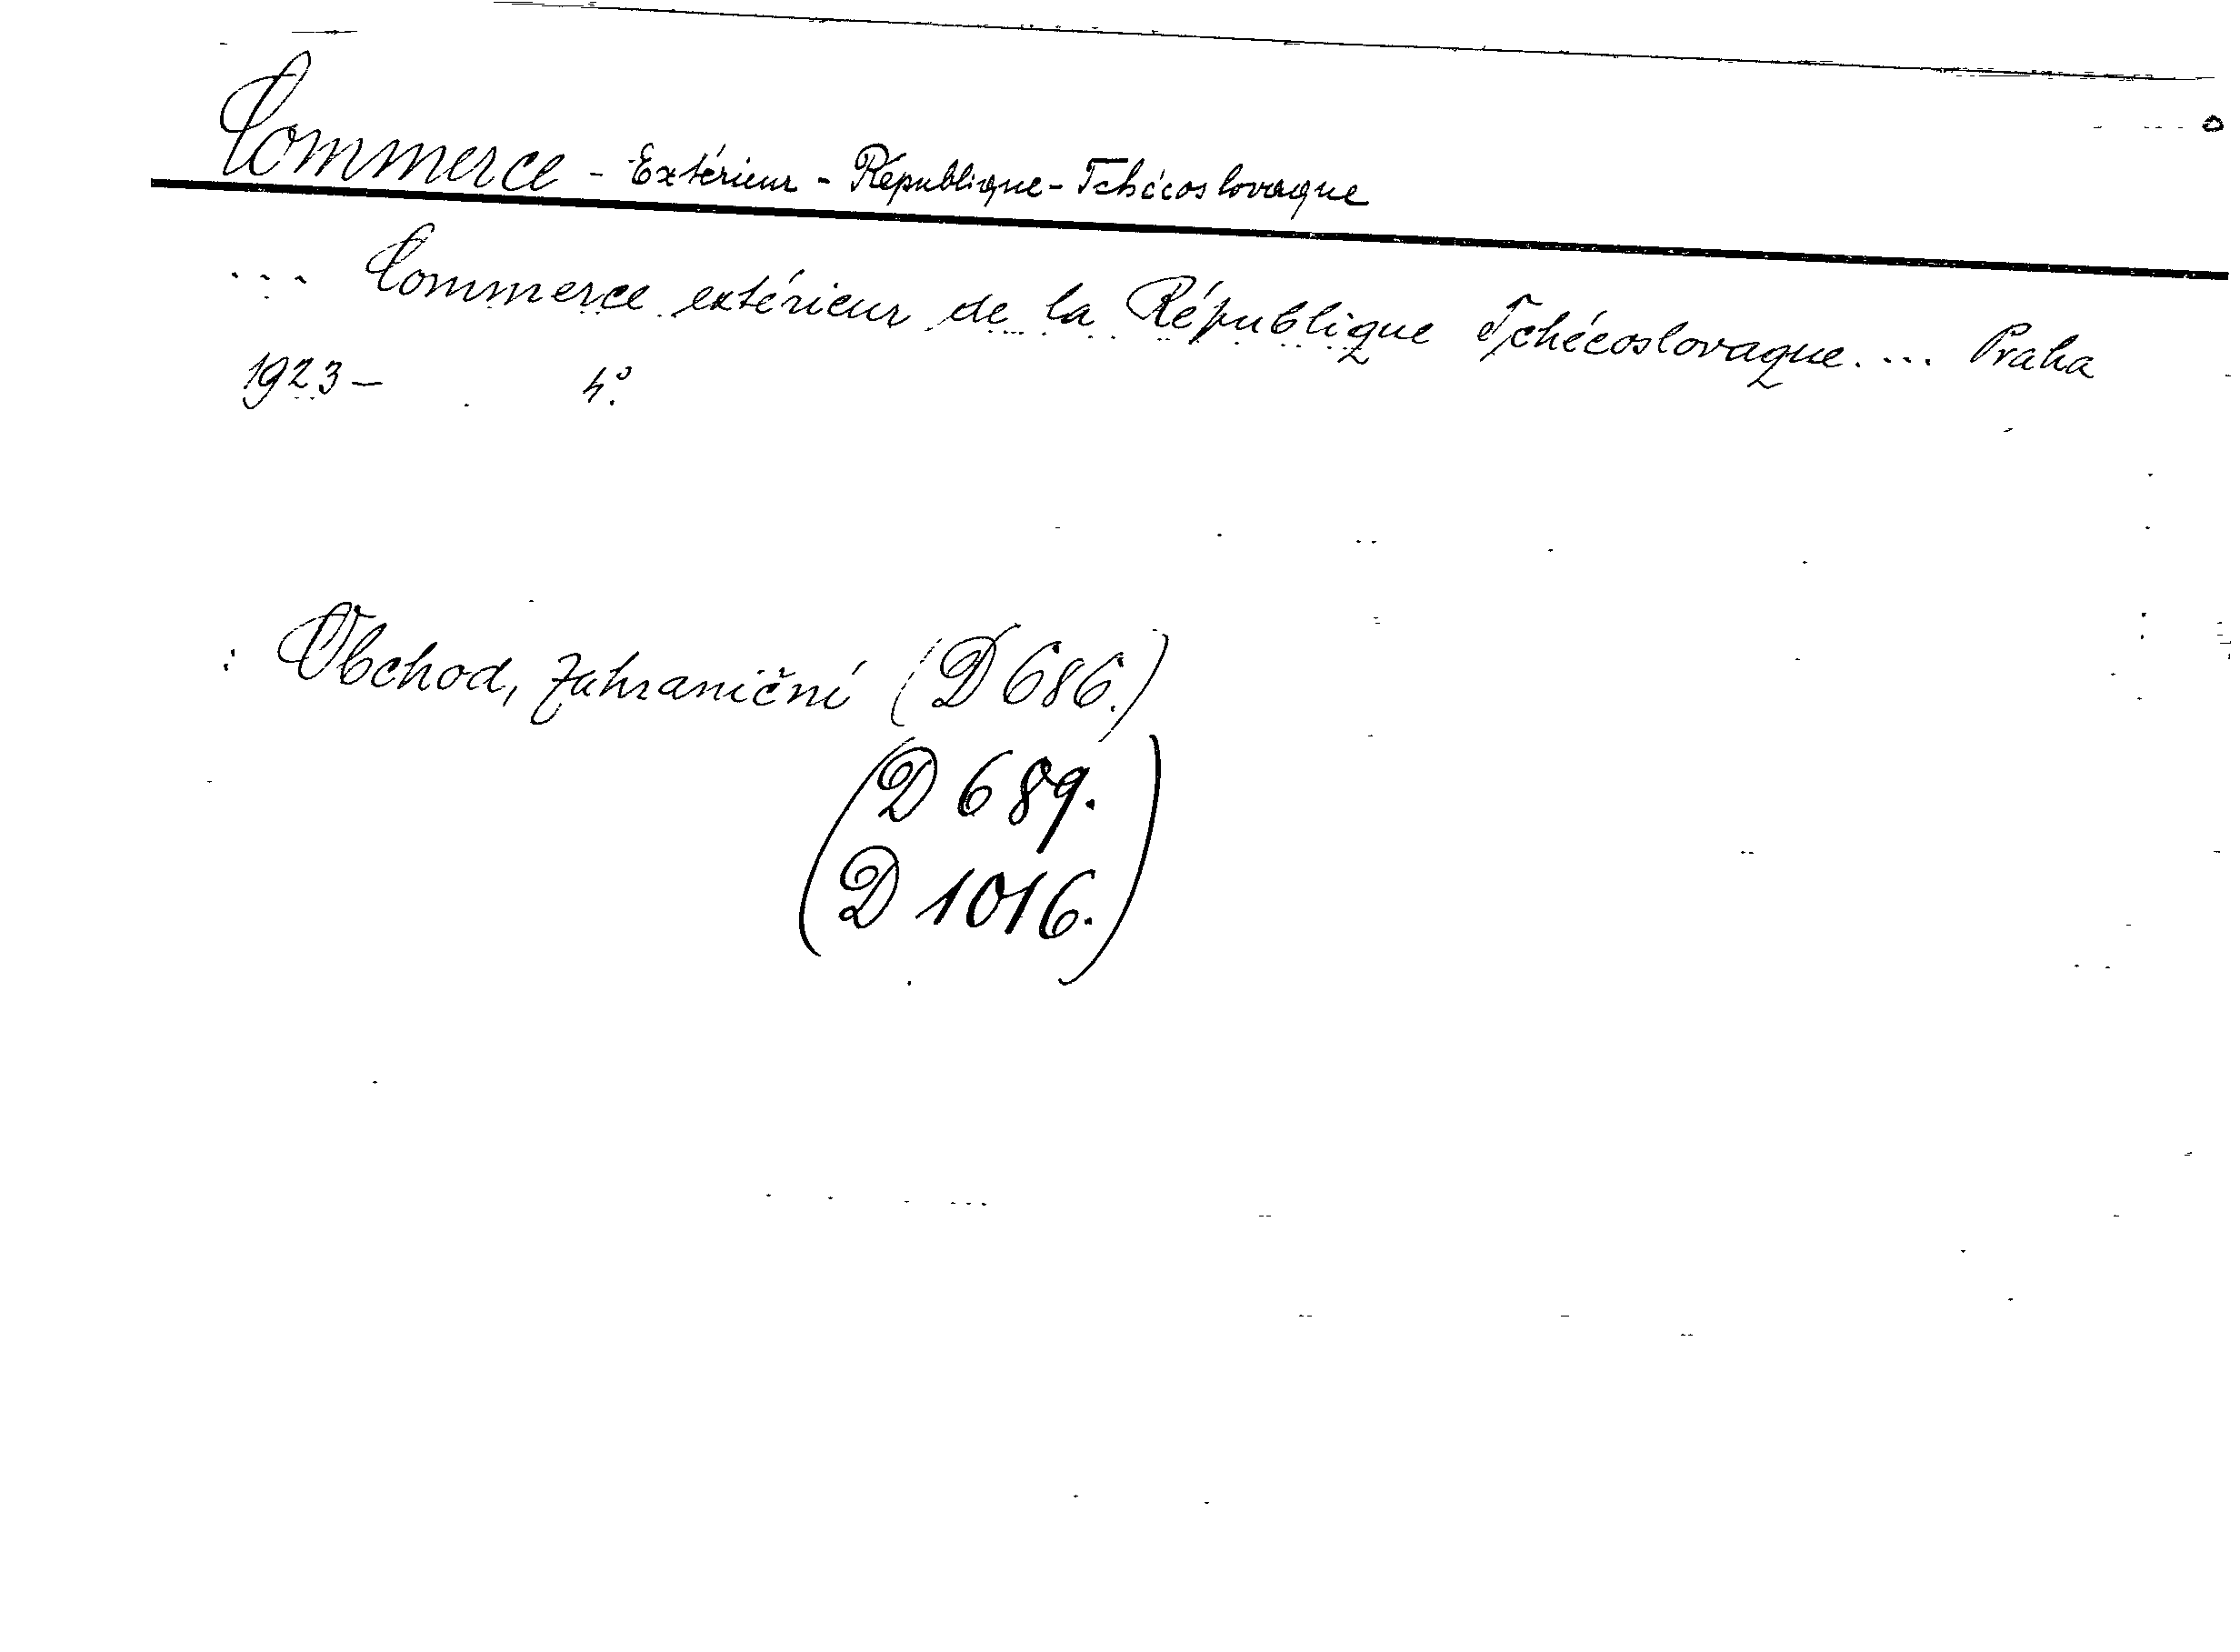 Commerce - Extérieur - République - Tchécoslovaque
... Commerce extérieur de la République Tchécoslovaque. ... Praha
1923— 4°.
: Obchod, zahraniční (D 686.)
(D 689.
D 1016.)